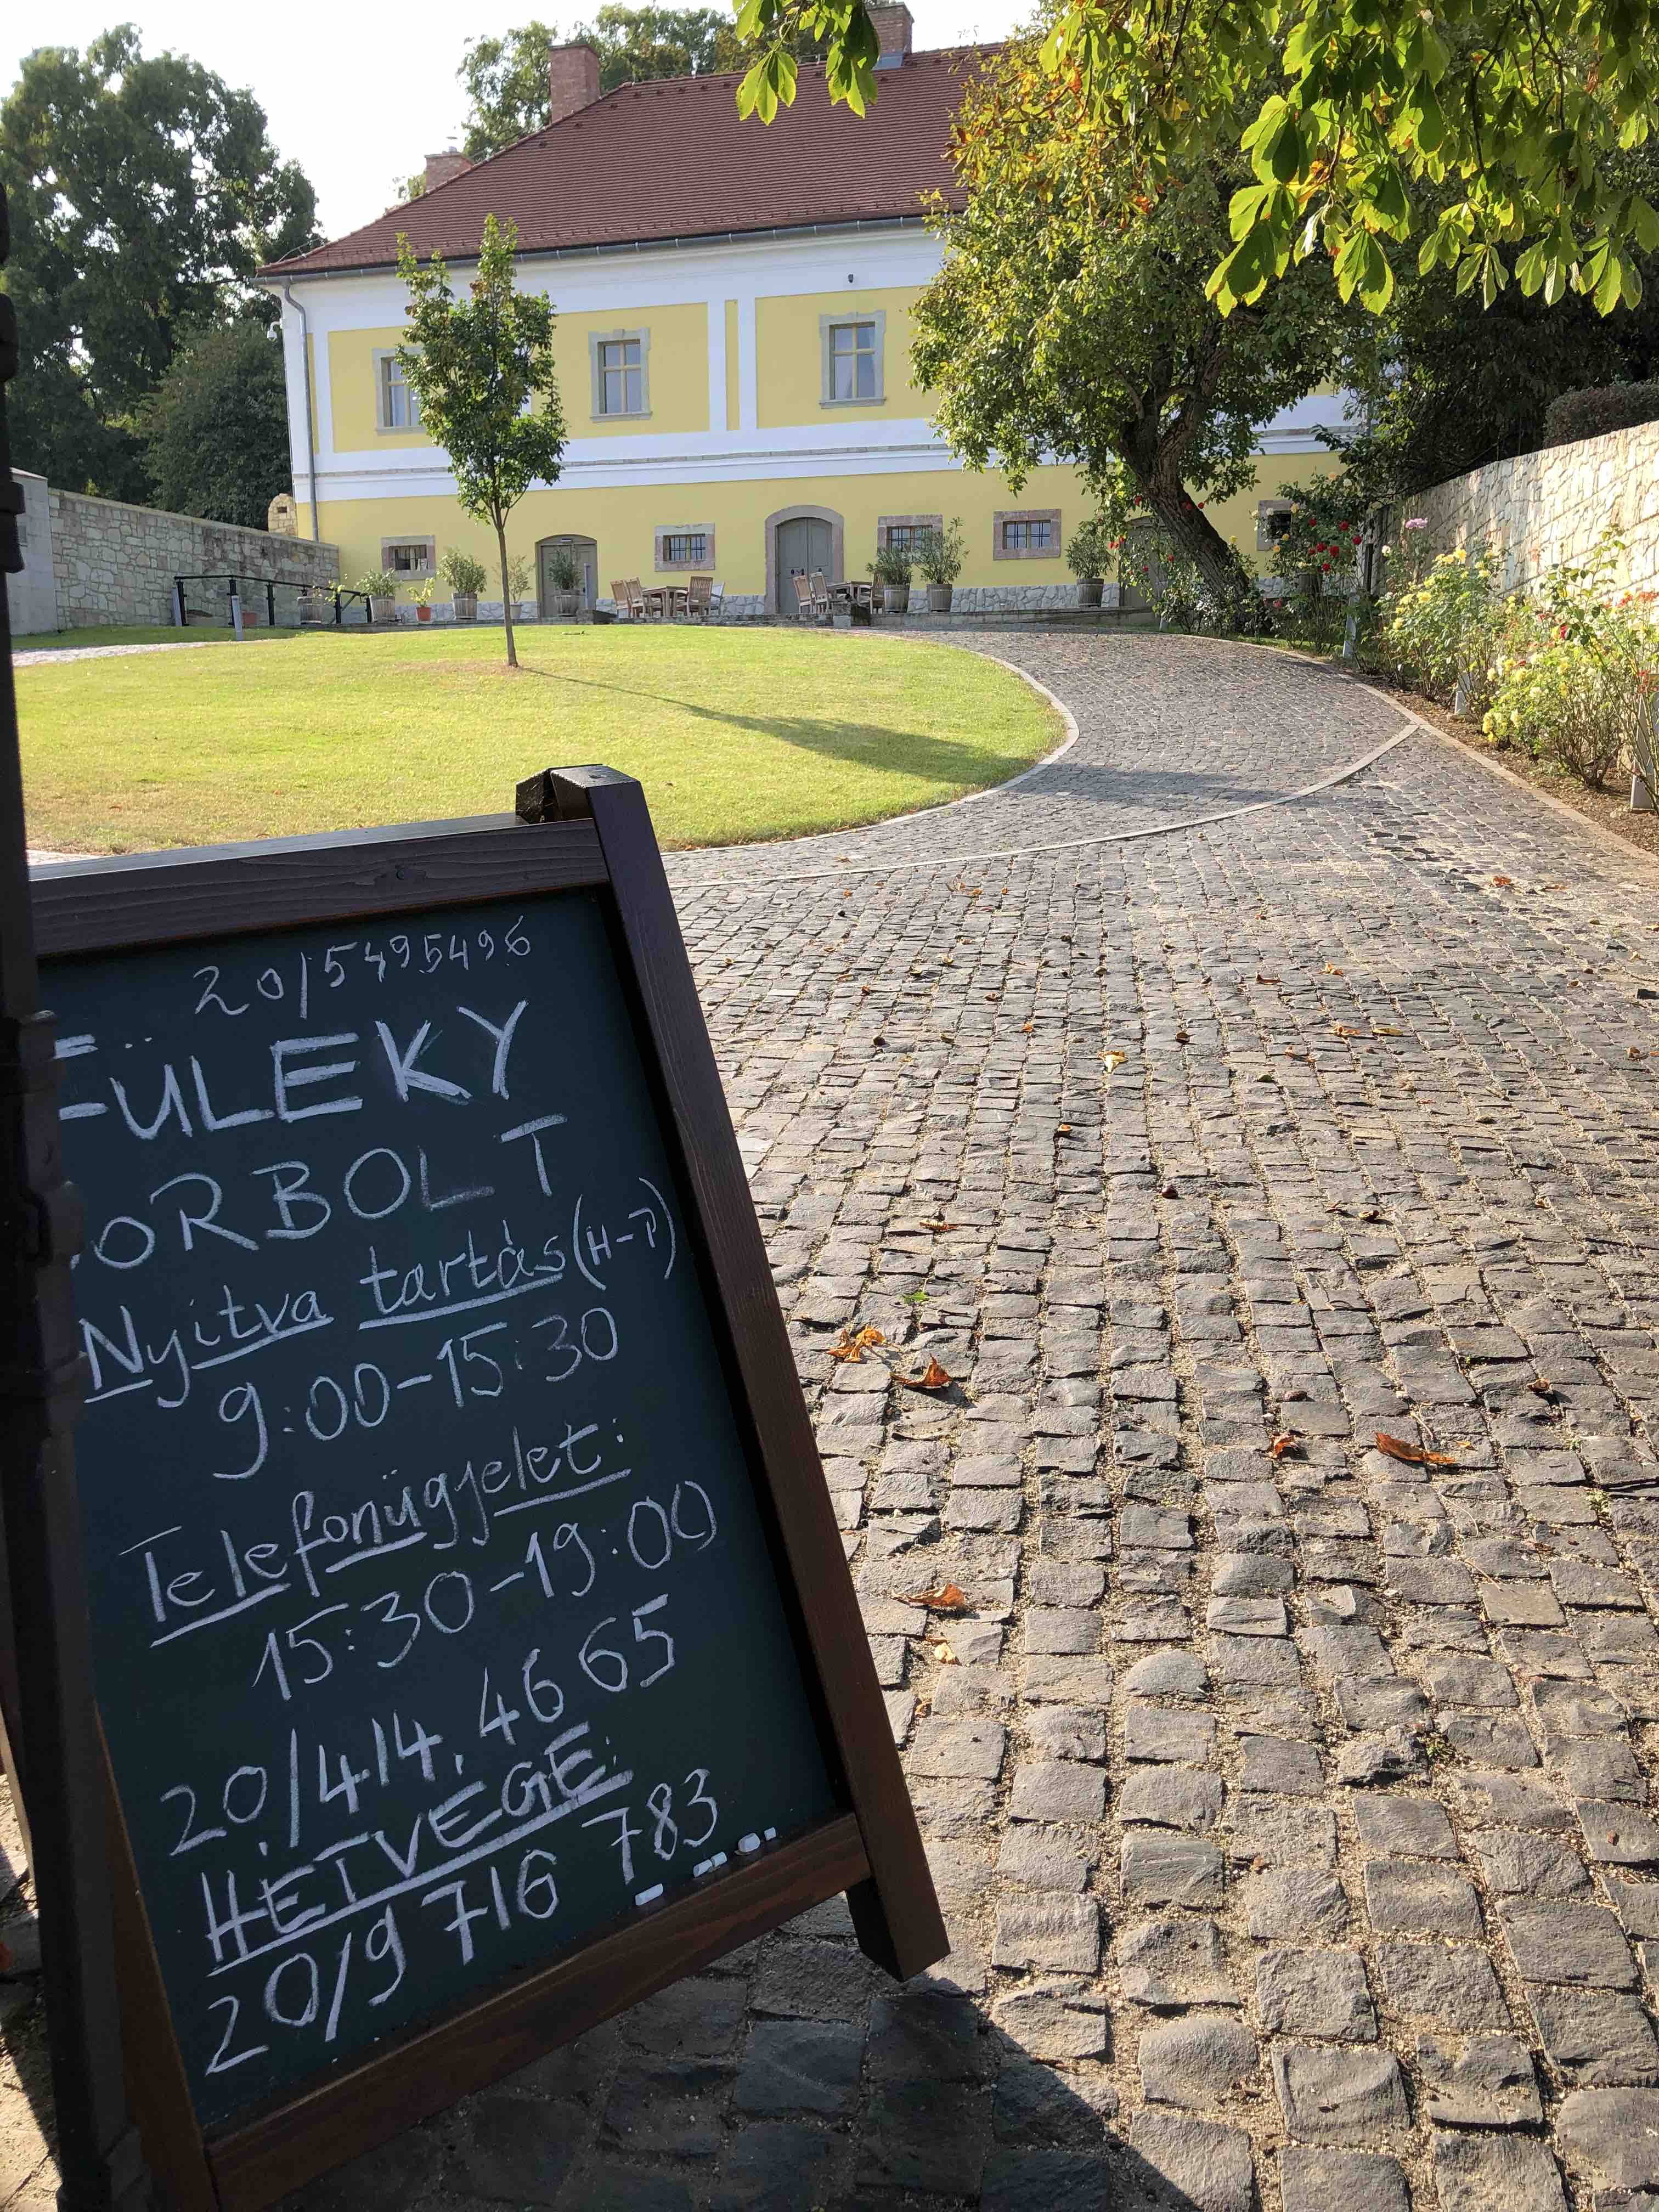 20/5495496
FÜLEKY
BORBOLT
Nyitva tartás (H-P)
9:00-15:30
Telefonügyelet:
15:30-19:00
20/414.4665
HÉTVÉGE:
20/9716783